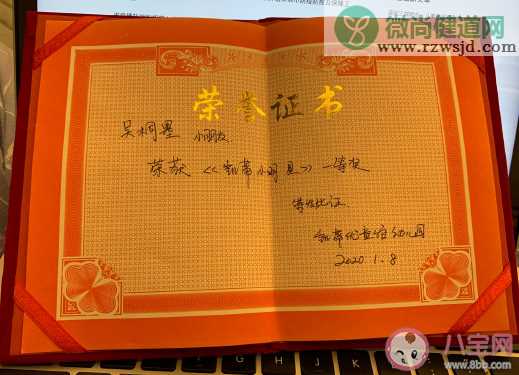 微尚健道网
www.rzwsjd.com
荣誉证书
吴桐墨 小朋友
荣获《凯蒂小明星》一等奖
特发此证
幼儿园
2020.1.8
八宝网
www.8bb.com